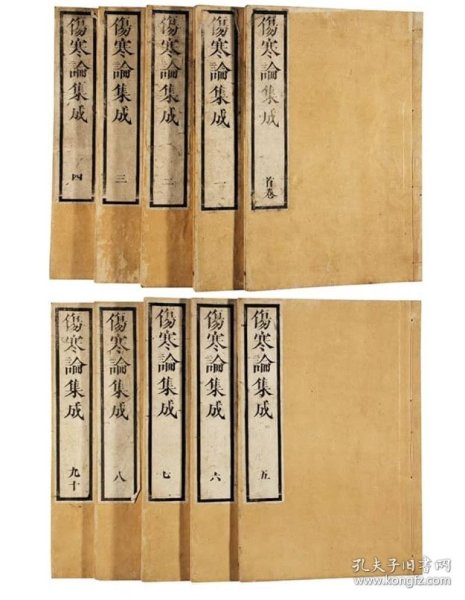 傷寒論集成
首卷
傷寒論集成
一
傷寒論集成
二
傷寒論集成
三
傷寒論集成
四
傷寒論集成
五
傷寒論集成
六
傷寒論集成
七
傷寒論集成
八
傷寒論集成
九十
孔夫子旧书网
www.kongfz.com